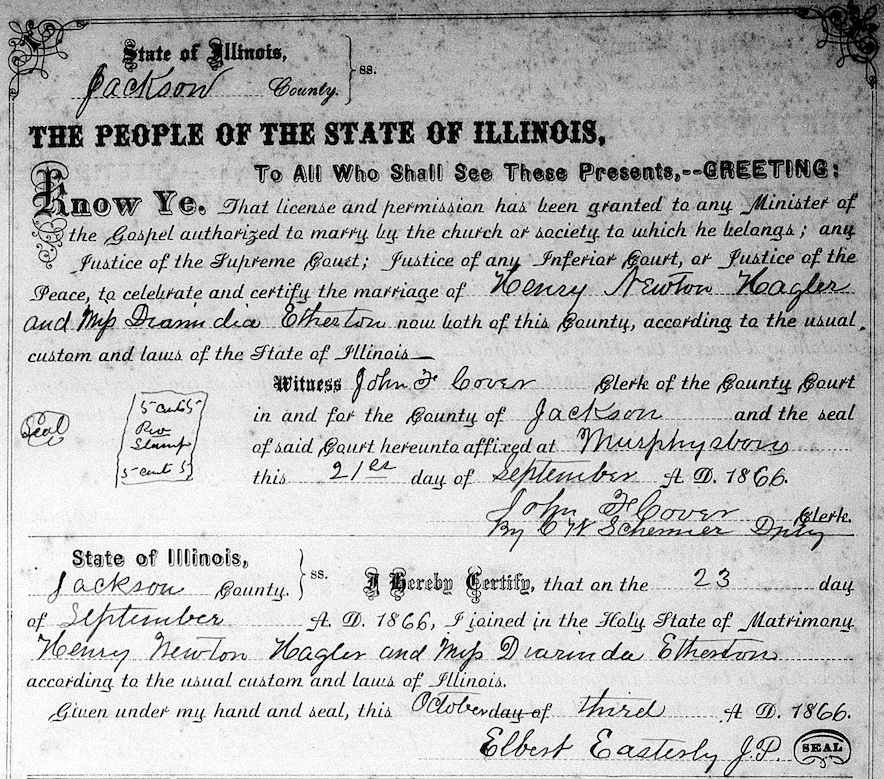 State of Illinois,
Jackson County. ss.
THE PEOPLE OF THE STATE OF ILLINOIS,
To All Who Shall See These Presents,--GREETING:
Know Ye. That license and permission has been granted to any Minister of
the Gospel authorized to marry by the church or society to which he belongs; any
Justice of the Supreme Court; Justice of any Inferior Court, or Justice of the
Peace, to celebrate and certify the marriage of Henry Newton Hagler
and Miss Diarindia Etherton now both of this County, according to the usual
custom and laws of the State of Illinois
Witness John F Cover Clerk of the County Court
in and for the County of Jackson and the seal
of said Court hereunto affixed at Murphysboro
this 21es day of September A. D. 1866.
Seal
5 cents 5
Rev
Stamp
5 cents 5
John F Cover Clerk.
By C W Schemier Dpty
State of Illinois,
Jackson County. ss. I Hereby Certify, that on the 23 day
of September A. D. 1866, I joined in the Holy State of Matrimony
Henry Newton Hagler and Miss Diarinda Etherton
according to the usual custom and laws of Illinois.
Given under my hand and seal, this October day of third A. D. 1866.
Elbert Easterly J.P. SEAL